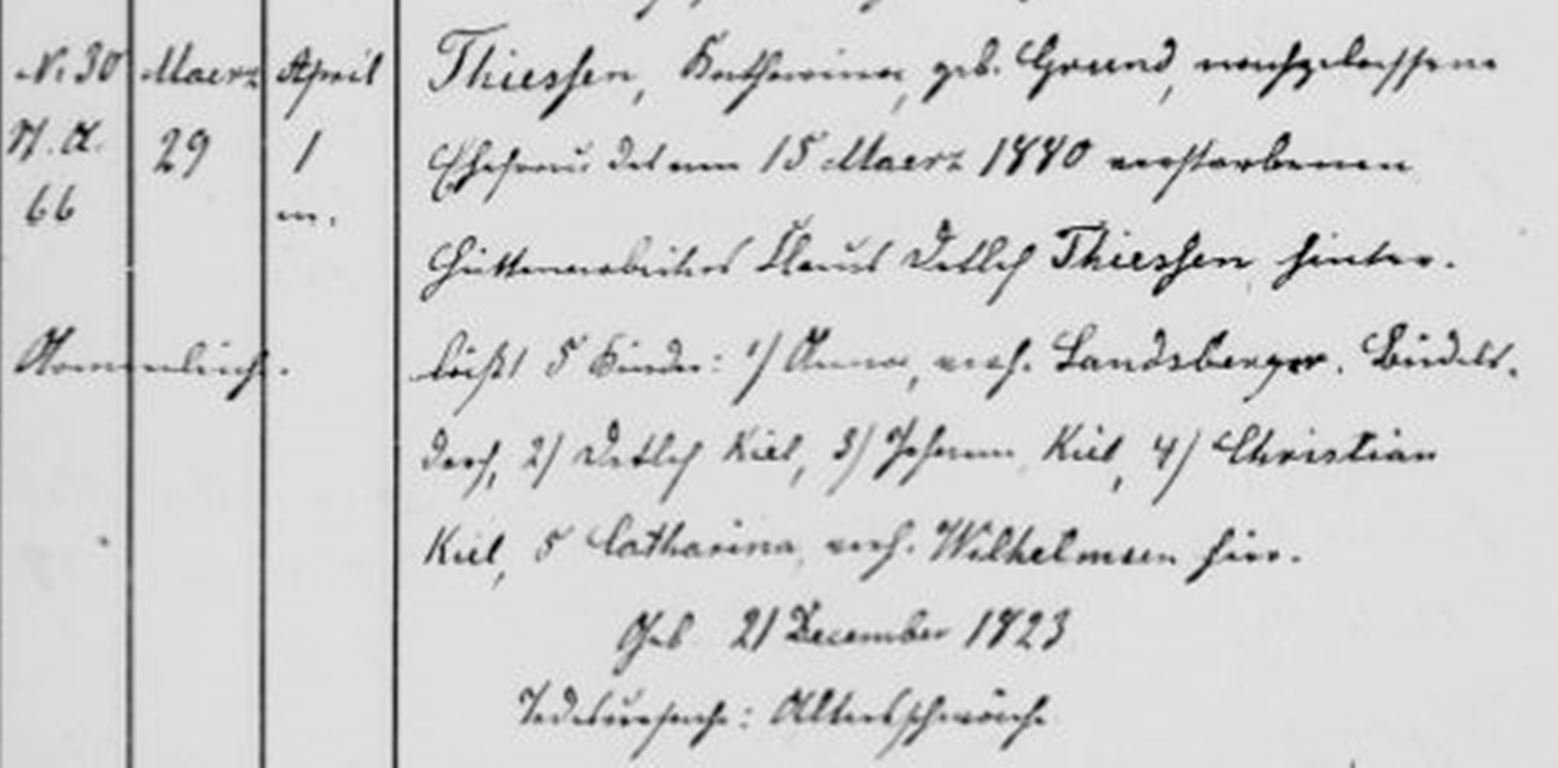 No 30 Maerz April Thiessen, Katharina, geb. Grund, nachgelassene
St. A. 29 1 Ehefrau des am 15 Maerz 1880 verstorbenen
66 m. Hüttenarbeiters Klaus Detlef Thiessen hinter-
Armenleiche. läßt 5 Kinder: 1/ Anna, verh. Landsberger. Büdels-
dorf, 2/ Detlef Kiel, 3/ Johann Kiel, 4/ Christian
Kiel, 5 Catharina verh. Wilhelmsen hier.
Geb 21 December 1823
Todesursache: Altersschwäche